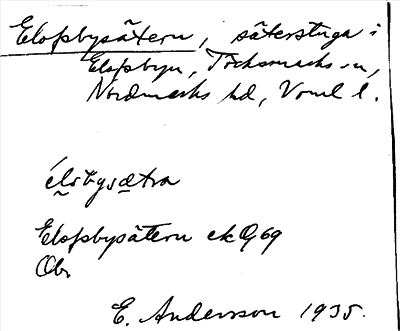 Elofsbysätern, säterstuga i
Elofsbyn, Töcksmarks sn,
Nordmarks hd, Vrml l.
élɷbysætra
Elofsbysätern ek Q69
Obr
E. Andersson 1935.